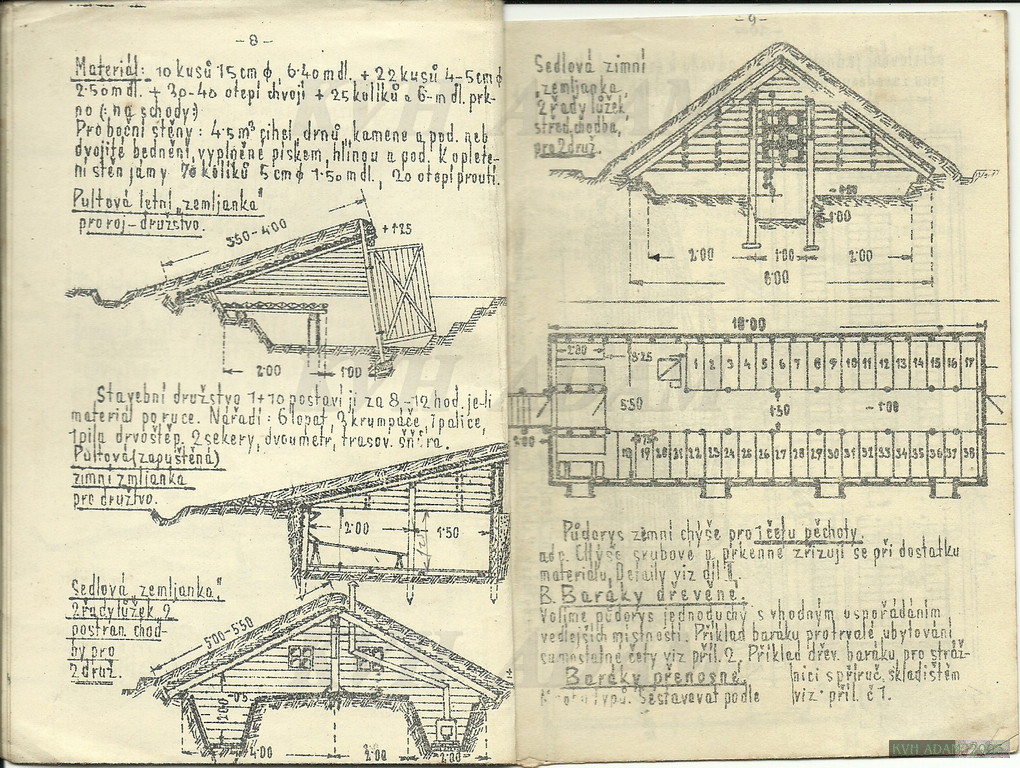 -8-
Materiál: 10 kusů 15cm ϕ, 6·40m dl. + 22 kusů 4-5cm ϕ
2·50m dl. + 30-40 otepí chvojí + 25 kolíků a 6-m dl. prk-
no (: na schody:)
Pro boční stěny: 4·5m³ cihel, drnů, kamene a pod. neb
dvojité bednění, vyplněné pískem, hlinou a pod. K oplete-
ní stěn jámy 70 kolíků 5cm ϕ 1·50m dl., 20 otepí proutí.
Pultová letní „zemljanka"
pro roj-družstvo.
350-400
+1·25
2·00
1·00
Stavební družstvo 1+10 postaví ji za 8-12 hod. je-li
materiál po ruce. Nářadí: 6 lopat, 3 krumpáče, 1 palice,
1 pila, 2 sekery, dvoumetr, trasov. šňůra.
Pultová (zapuštěná)
zimní zmljanka
pro družstvo.
2·00
1·50
Sedlová „zemljanka"
2 řady lůžek, 2
postran. chod-
by pro
2 druž.
500-550
4·00
2·00
2·00
-9-
Sedlová zimní
„zemljanka,
2 řady lůžek,
střed. chodba,
pro 2 druž.
1·00
2·00
1·00
2·00
6·00
18·00
2·80
5·50
1·50
1·00
1 2 3 4 5 6 7 8 9 10 11 12 13 14 15 16 17
18 19 20 21 22 23 24 25 26 27 28 29 30 31 32 33 34 35 36 37 38
Půdorys zemní chýše pro 1 četu pěchoty.
adc. Chýše srubové a prkenné zřizují se při dostatku
materiálu. Detaily viz díl I.
B. Baráky dřevěné.
Volíme půdorys jednoduchý s vhodným uspořádáním
vedlejších místností. Příklad baráku pro trvalé ubytování
samostatné čety viz příl. 2. Příklad dřev. baráku pro stráž-
nici s příruč. skladištěm
viz· příl. č 1.
Baráky přenosné.
typů. Sestavovat podle
KVH ADAM